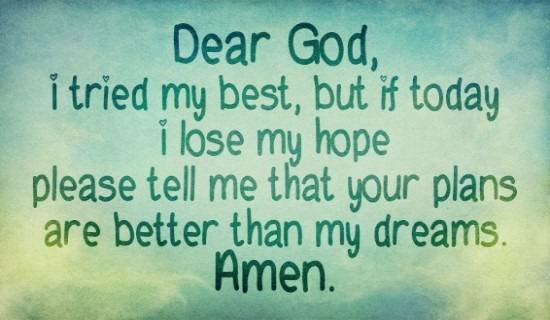 Dear God,
i tried my best, but if today
i lose my hope
please tell me that your plans
are better than my dreams.
Amen.